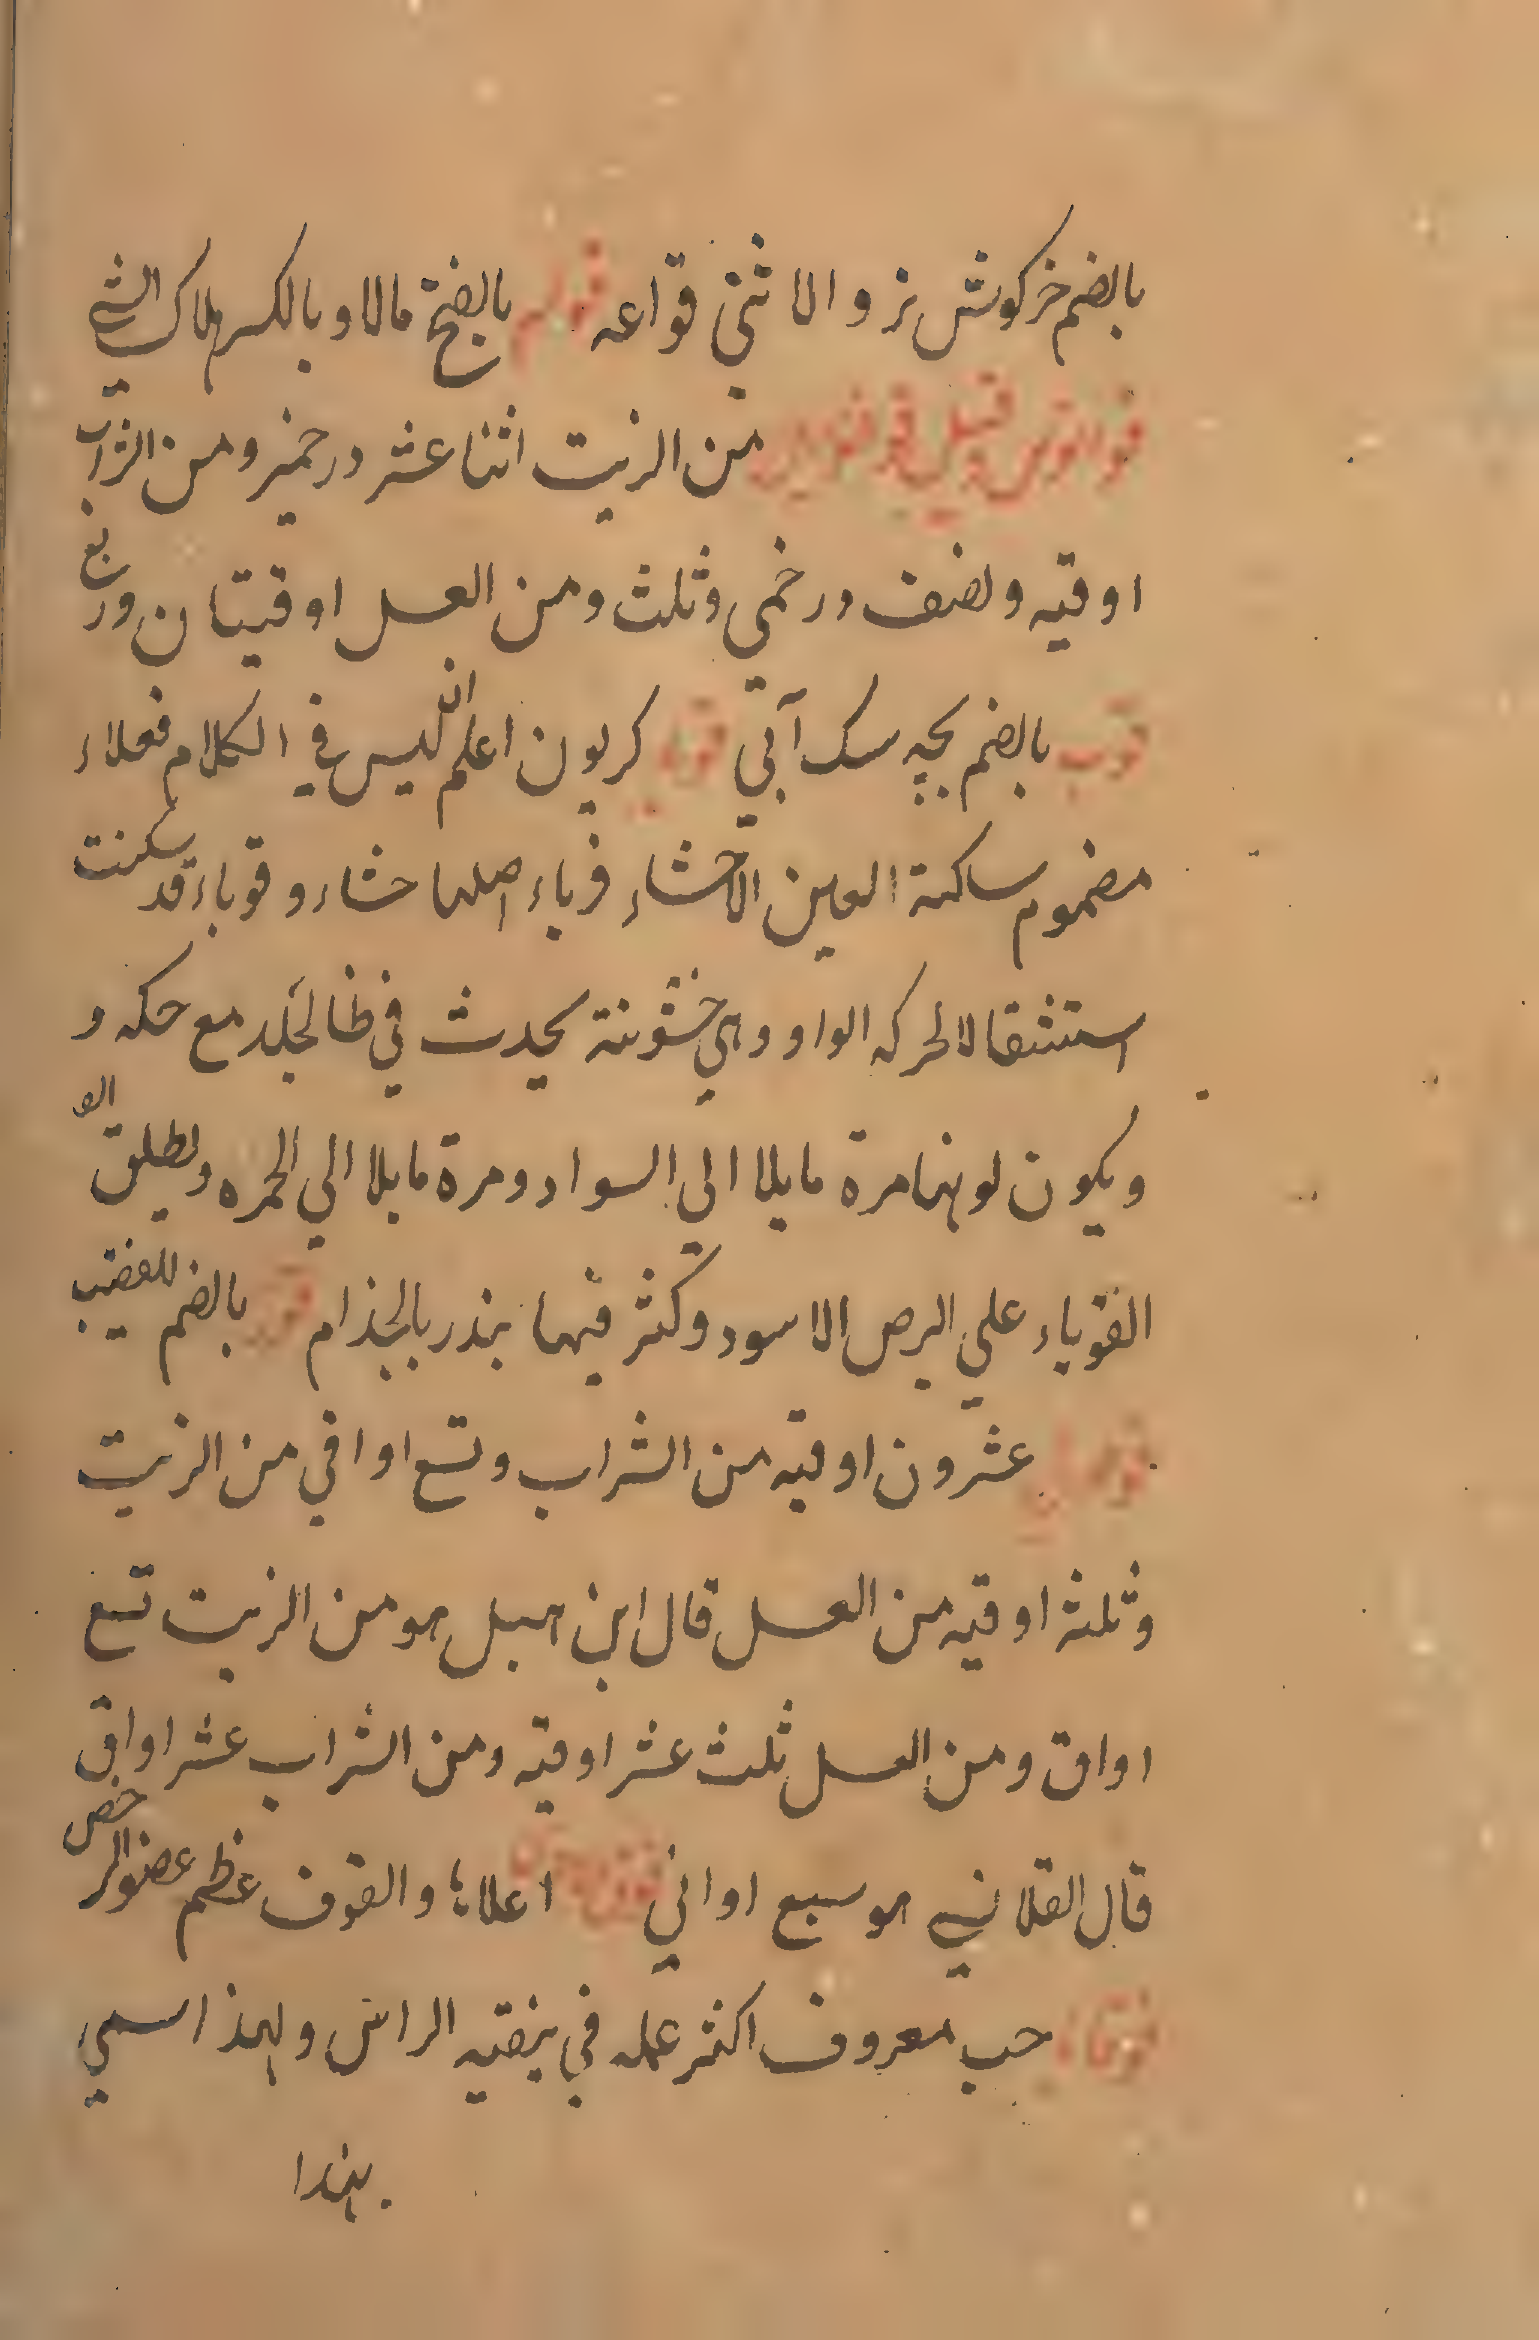 بالضم خرکوش نر و الانثی قواعه بالفتح مالا و بالکسر ملاک الشی
من الزیت اثنا عشر درخمیر و من الشراب
اوقیه و نصف درخمی و ثلث و من العسل اوقیتان و ربع
قوب بالضم بچه سک آبی قوبا کریون اعلم انه لیس فی الکلام فعلاء
مضموم ساکنة العین الاخشاء قرباء اصلها خشاء و قوباء قد سکنت
استثقالا لحرکه الواو و هی خشونة یحدث فی ظاالجلد مع حکه و
و یکون لونها مرة مایلا الی السواد و مرة مایلا الی الحمره و یطلق الو
القوباء علی البرص الاسود و کثر فیها ینذر بالجذام قور بالضم للقضیب
عشرون اوقیه من الشراب و تسع اواقی من الزیت
و ثلثه اوقیه من العسل قال ابن هبل هو من الزیت تسع
اواق و من العسل ثلث عشر اوقیه و من الشراب عشر اواق
قال القلانسی هو سبع اواقی اعلاها و القوف عظم عضو الرخص
قوقایا حب معروف اکثر عمله فی ینقیه الراس و لهذا سمی
بهذا